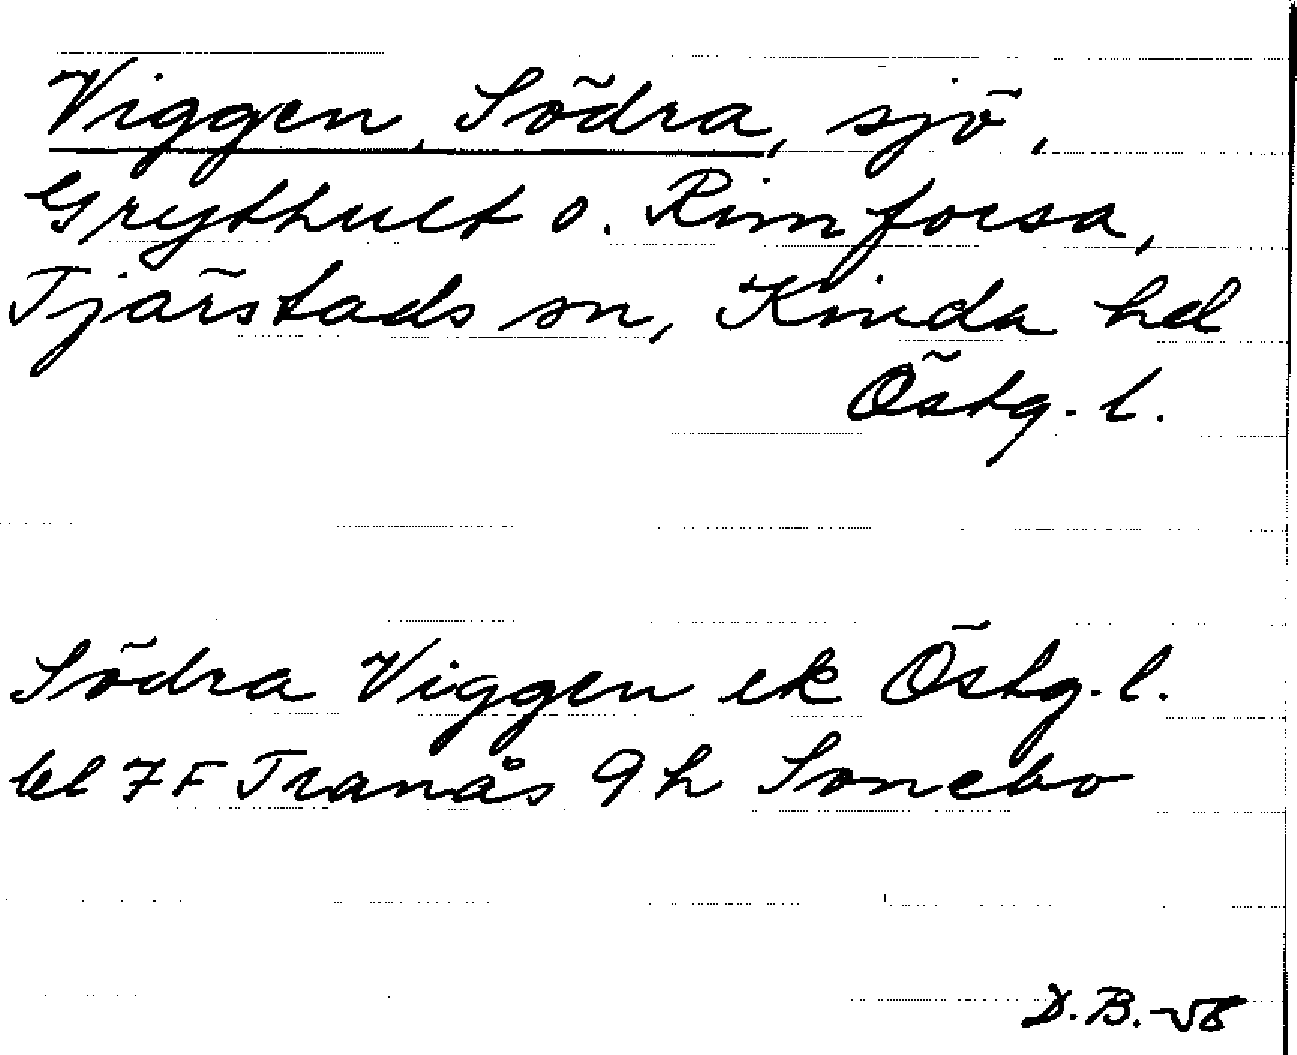 Viggen, Södra, sjö,
Grythult o. Rimforsa,
Tjärstads sn, Kinda hd
Östg. l.
Södra Viggen ek Östg. l.
bl 7 F Tranås 9 h Sonebo
D. B. -58